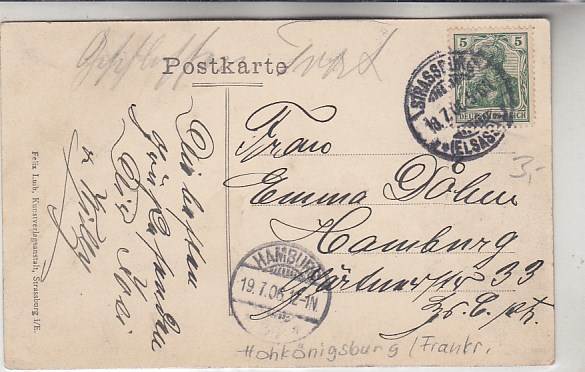 Postkarte
5 5
STRASSBURG
18.7.06
(ELSASS)
DEUTSCHES REICH
Die besten
Grüße senden
Dir
u. Willy
Frau
Emma Dohm
Hamburg
Gärtnerstr 33
HAMBURG
19.7.06. 12-1N.
3,-
Hohkönigsburg / Frankr.
Felix Luib, Kunstverlagsanstalt, Strassburg i/E.